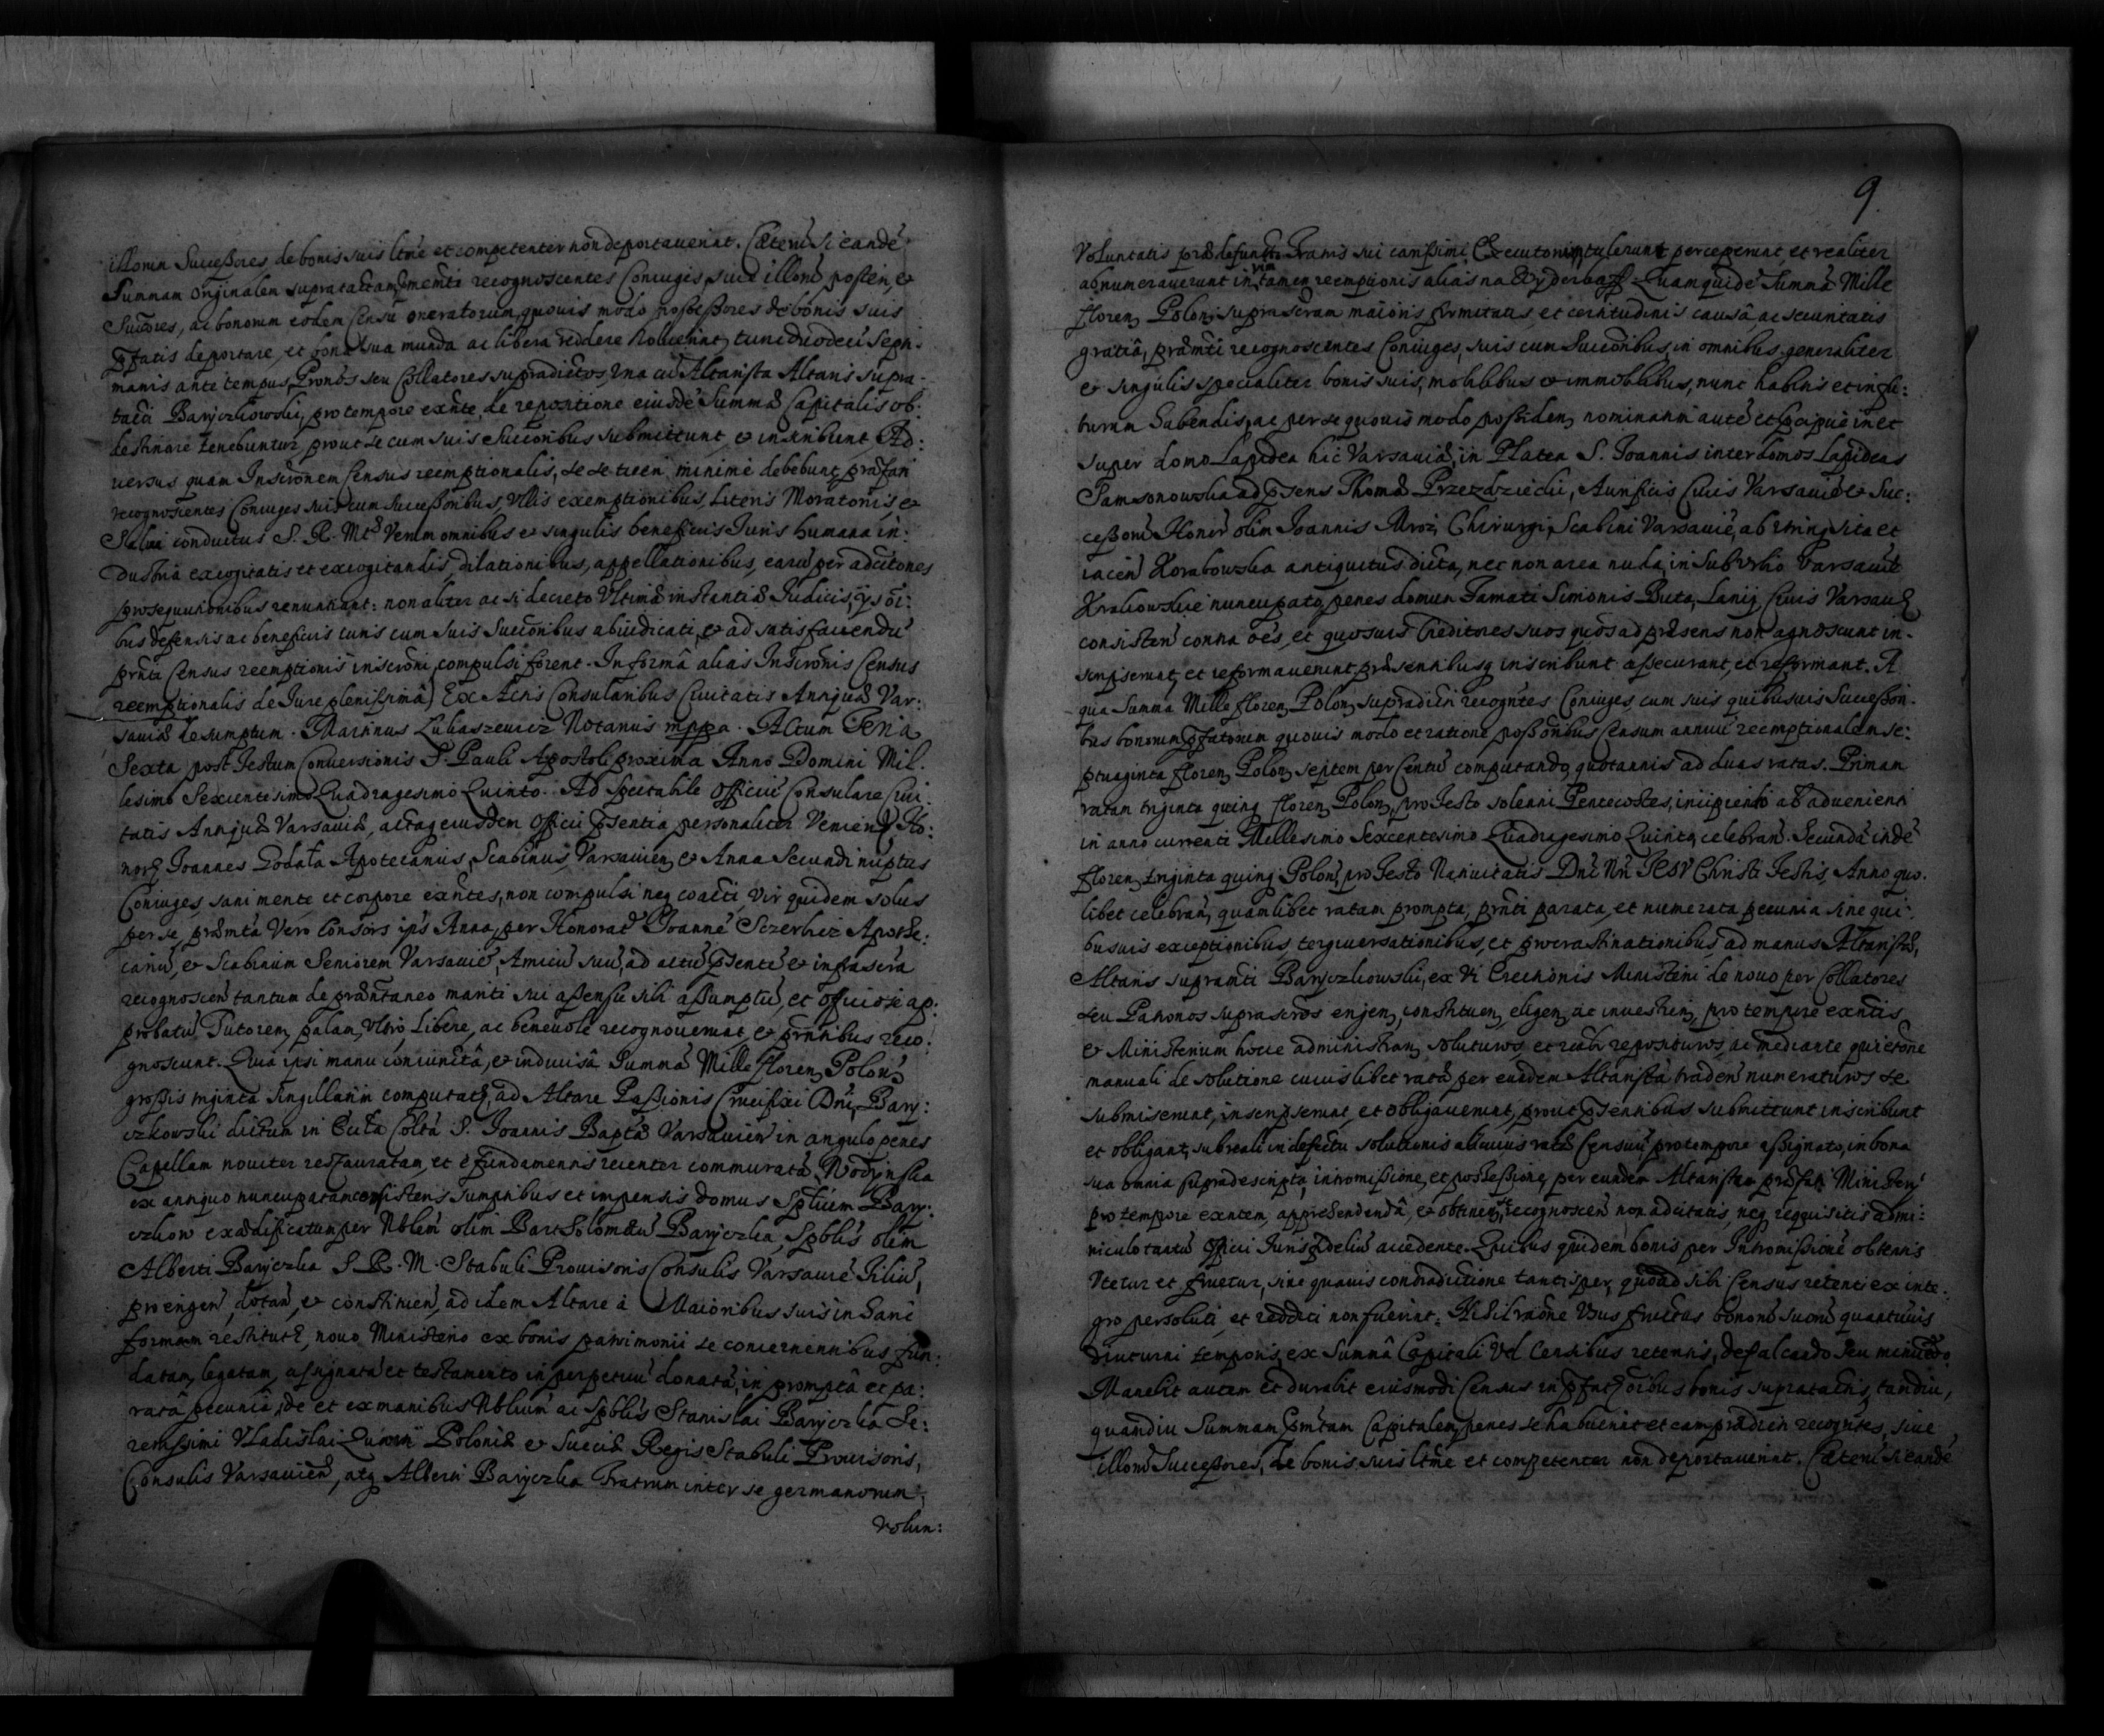 illorum Successores, de bonis suis ltme et competenter non deportauerint. Cæterũ si eandẽ
Summam originalem supratactam memti recognoscentes Coniuges siue illorũ posteri, &
Succores, ac bonorum eodem Censu oneratorum, quouis modo possessores de bonis suis
pfatis deportare, et bona sua munda ac libera reddere Noluerint, tunc duodeci Septi:
manis ante tempus, Pronos seu Collatores supradictos, Vna cũ Altarista Altaris supra-
tacti Baryczkowski, pro tempore exnte, de repositione eiusdẽ Summæ Capitalis ob:
destinare tenebuntur, prout se cum suis Succoribus submittunt, & inscribunt. Ad:
uersus quam Inscronem Census reemptionalis, se se tueri minimè debebunt, præfati
recognoscentes Coniuges suis cum Successoribus, Vllis exemptionibus, Literis Moratorijs &
Salui conductus S. R. Mtis Verum omnibus & singulis beneficijs Iuris humana in:
dustria excogitatis et excogitandis, dilationibus, appellationibus, earũ per adcitones
prosequutionibus renuntiant: non aliter ac si decreto Vltimæ instantiæ Iudicis, ijs oi:
bus defensis ac beneficijs iuris cum suis Succoribus abiudicati, & ad satisfaciendũ
prnti Census reemptionis inscroni, compulsi forent. In formâ alias Inscronis Census
reemptionalis de Iure plenissimâ) Ex Actis Consularibus Ciuitatis Antiquæ Var:
sauiæ desumptum. Martinus Lukaszewicz Notarius mppa. Actum Feria
Sexta post Festum Conuersionis S. Pauli Apostoli proxima Anno Domini Mil.
lesimo Sexcentesimo Quadragesimo Quinto. Ad Spectabile Officiũ Consulare Ciui:
tatis Antiquæ Varsauiæ, actaq eiusdem Officij psentia personaliter Venien Ho:
nor Ioannes Godała Apotecarius, Scabinus Varsauien, & Anna Secundi nuptus
Coniuges, sani mente et corpore exntes, non compulsi neq coacti, vir quidem solus
per se, præmta Vero Consors ips Anna, per Honorat Ioannẽ Sczerbiz Apothe:
cariũ, & Scabinum Seniorem Varsauiẽ, Amicũ suũ, ad actũ psentẽ & infrascra
recognoscen tantum de præntaneo mariti sui assensu sibi assumptũ, et officiosè ap:
probatũ Tutorem, palam, vltrò, Liberè, ac beneuolè recognouerunt, & prntibus reco:
gnoscunt. Quia ipsi manu coniunctâ, & indiuisâ Summã Mille floren Polon
grossis triginta singillatim computat, ad Altare Passionis Crucifixi Dni, Bary:
czkowski dictum in Ecclia Collta S. Ioannis Baptæ Varsauien in angulo penes
Capellam nouiter restauratam, et è fundamentis recenter commuratã, Wodynska
ex antiquo nuncupatam consistens sumptibus et impensis domus Spblium Bary:
czkow exædificatum per Nblem olim Bartholomæũ Baryczka, Spblis olim
Alberti Baryczka S. R. M. Stabuli Prouisoris Consulis Varsauiẽ Filiũ,
pro erigen, dotan, & constituen, ad idem Altare à Maioribus suis in hanc
formam restitutũ, nouo Ministerio ex bonis patrimonii se concernentibus fun:
datam, legatam, assignatã et testamento in perpetuũ donatã, in promptâ et pa:
ratâ pecuniâ, de et ex manibus Nblium ac Spblis Stanislai Baryczka Se:
renissimi Vladislai Quarti Poloniæ & Sueciæ Regis Stabuli Prouisoris,
Consulis Varsauien, atq Alberti Baryczka Fratrum inter se germanorum,
Volun:
9.
Voluntatis prædefuncti Fratris sui carissimi Executorum, tulerunt perceperunt, et realiter
abnumerauerunt in vim tamen reemptionis alias na Wyderkaff. Quam quidẽ Summã Mille
floren Polon suprascram maioris firmitatis, et certitudinis causâ, ac securitatis
gratiâ, præmti recognoscentes Coniuges, suis cum Succoribus, in omnibus generaliter
& singulis specialiter bonis suis, mobilibus & immobilibus, nunc habitis et in fu:
turum habendis, ac per se quouis modo possiden, nominatim autẽ et pcipuè in et
super domo Lapidea hic Varsauiæ, in Platea S. Ioannis inter domos Lapideas
Samsonowska ad psens Thomæ Przezdziecki, Aurificis Ciuis Varsauiẽ & Suc:
cessorũ Honor olim Ioannis Mroz, Chirurgi, Scabini Varsauiẽ, ab vtrinq sita et
iacen Korabowska antiquitus dicta, nec non area nuda in Suburbio Varsauiẽ
Krakowskie nuncupato, penes domum Famati Simonis Buta, Lanij, Ciuis Varsau
consisten contra oẽs, et quosuis Creditores suos, quos ad præsens non agnoscunt in-
scripserunt, et reformauerunt præsentibusq inscribunt assecurant, et reformant. A
qua Summa Mille floren Polon supradicti recogntes Coniuges cum suis quibusuis Successori-
bus bonorum pfatorum quouis modo et ratione possoribus Censum annuũ reemptionalem se:
ptuaginta floren Polon septem per Centũ computando, quotannis ad duas ratas. Primam
ratam triginta quinq floren Polon, pro Festo solenni Pentecostes, incipiendo ab aduenienti
in anno currenti Millesimo Sexcentesimo Quadragesimo Quinto, celebran. Secundã indẽ
floren triginta quinq Polon, pro Festo Natiuitatis Dni Nri IESV Christi Festis, Anno quo-
libet celebran, quamlibet ratam prompta, prnti parata, et numerata pecunia sine qui-
busuis exceptionibus, tergiuersationibus, et procrastinationibus, ad manus Altaristæ,
Altaris supramti Baryczkowski, ex vi Erectionis Ministerii de nouo per Collatores
seu Patronos suprascros erigen, constituen, eligen, ac inuestien, pro tempore exntis
& Ministerium hocce administran, soluturos, et realr reposituros, ac mediante quietone
manuali de solutione cuiuslibet ratæ per eundem Altaristã traden numeraturos se
submiserunt, inscripserunt, et obligauerunt, prout psentibus submittunt inscribunt
et obligant, sub reali in defectu solutionis alicuius ratæ Censuũ, pro tempore assignato, in bona
sua omnia supradescripta, intromissione, et possessione, per eundem Altaristam præfati Ministerij
pro tempore exntem, apprehendendâ, & obtinen, se recognoscen non adcitatis, neq requisitis admi:
niculo tantũ Officij Iurisq fideliũ accedente. Quibus quidem bonis per Intromissionẽ obtentis
Vtetur et fruetur, sine quauis contradictione tantisper, quoad sibi Census retenti ex inte-
gro persoluti, et redditi non fuerint. Nihil ratione Vsus fructus bonorũ suorũ quantuuis
diuturni temporis, ex Summâ Capitali Vel Censibus retentis, defalcando seu minuendo.
Manebit autem et durabit eiusmodi Census in pfat oibus bonis supratactis, tandiu,
quandiu Summam pmtam Capitalem, penes se habuerint et eam prædicti recogntes, siue
illorũ Successores, de bonis suis ltme et competenter non deportauerint. Cæterũ si eandẽ